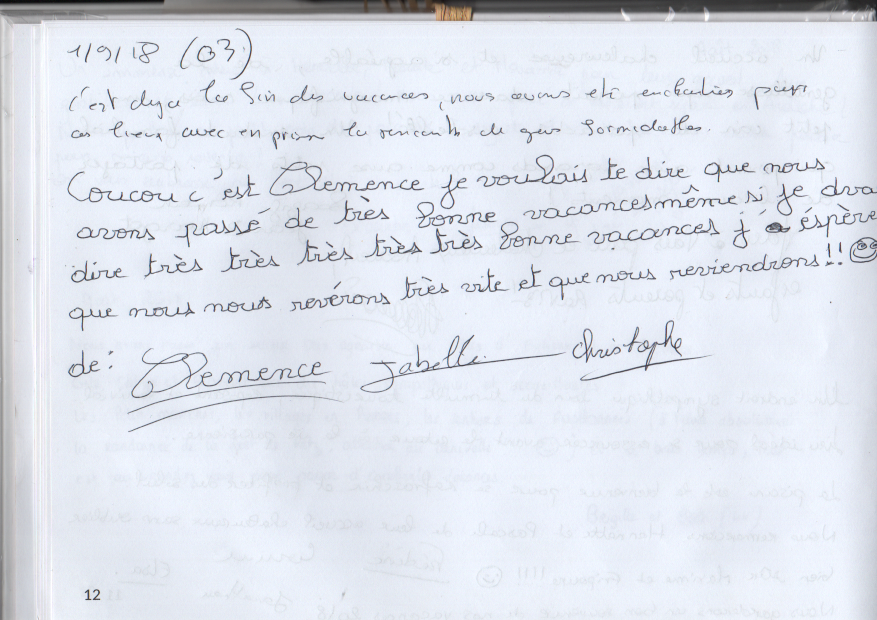 1/9/18 (03)
c'est deja la fin des vacances, nous avons eté enchantés par
ces lieux avec en prime la rencontre de gens formidables.
Coucou c'est Clemence je voulais te dire que nous
avons passé de très bonne vacances même si je dva
dire très très très très très bonne vacances j' éspère
que nous nous revérons très vite et que nous reviendrons!! ☺
de: Clemence Isabelle Christophe
12